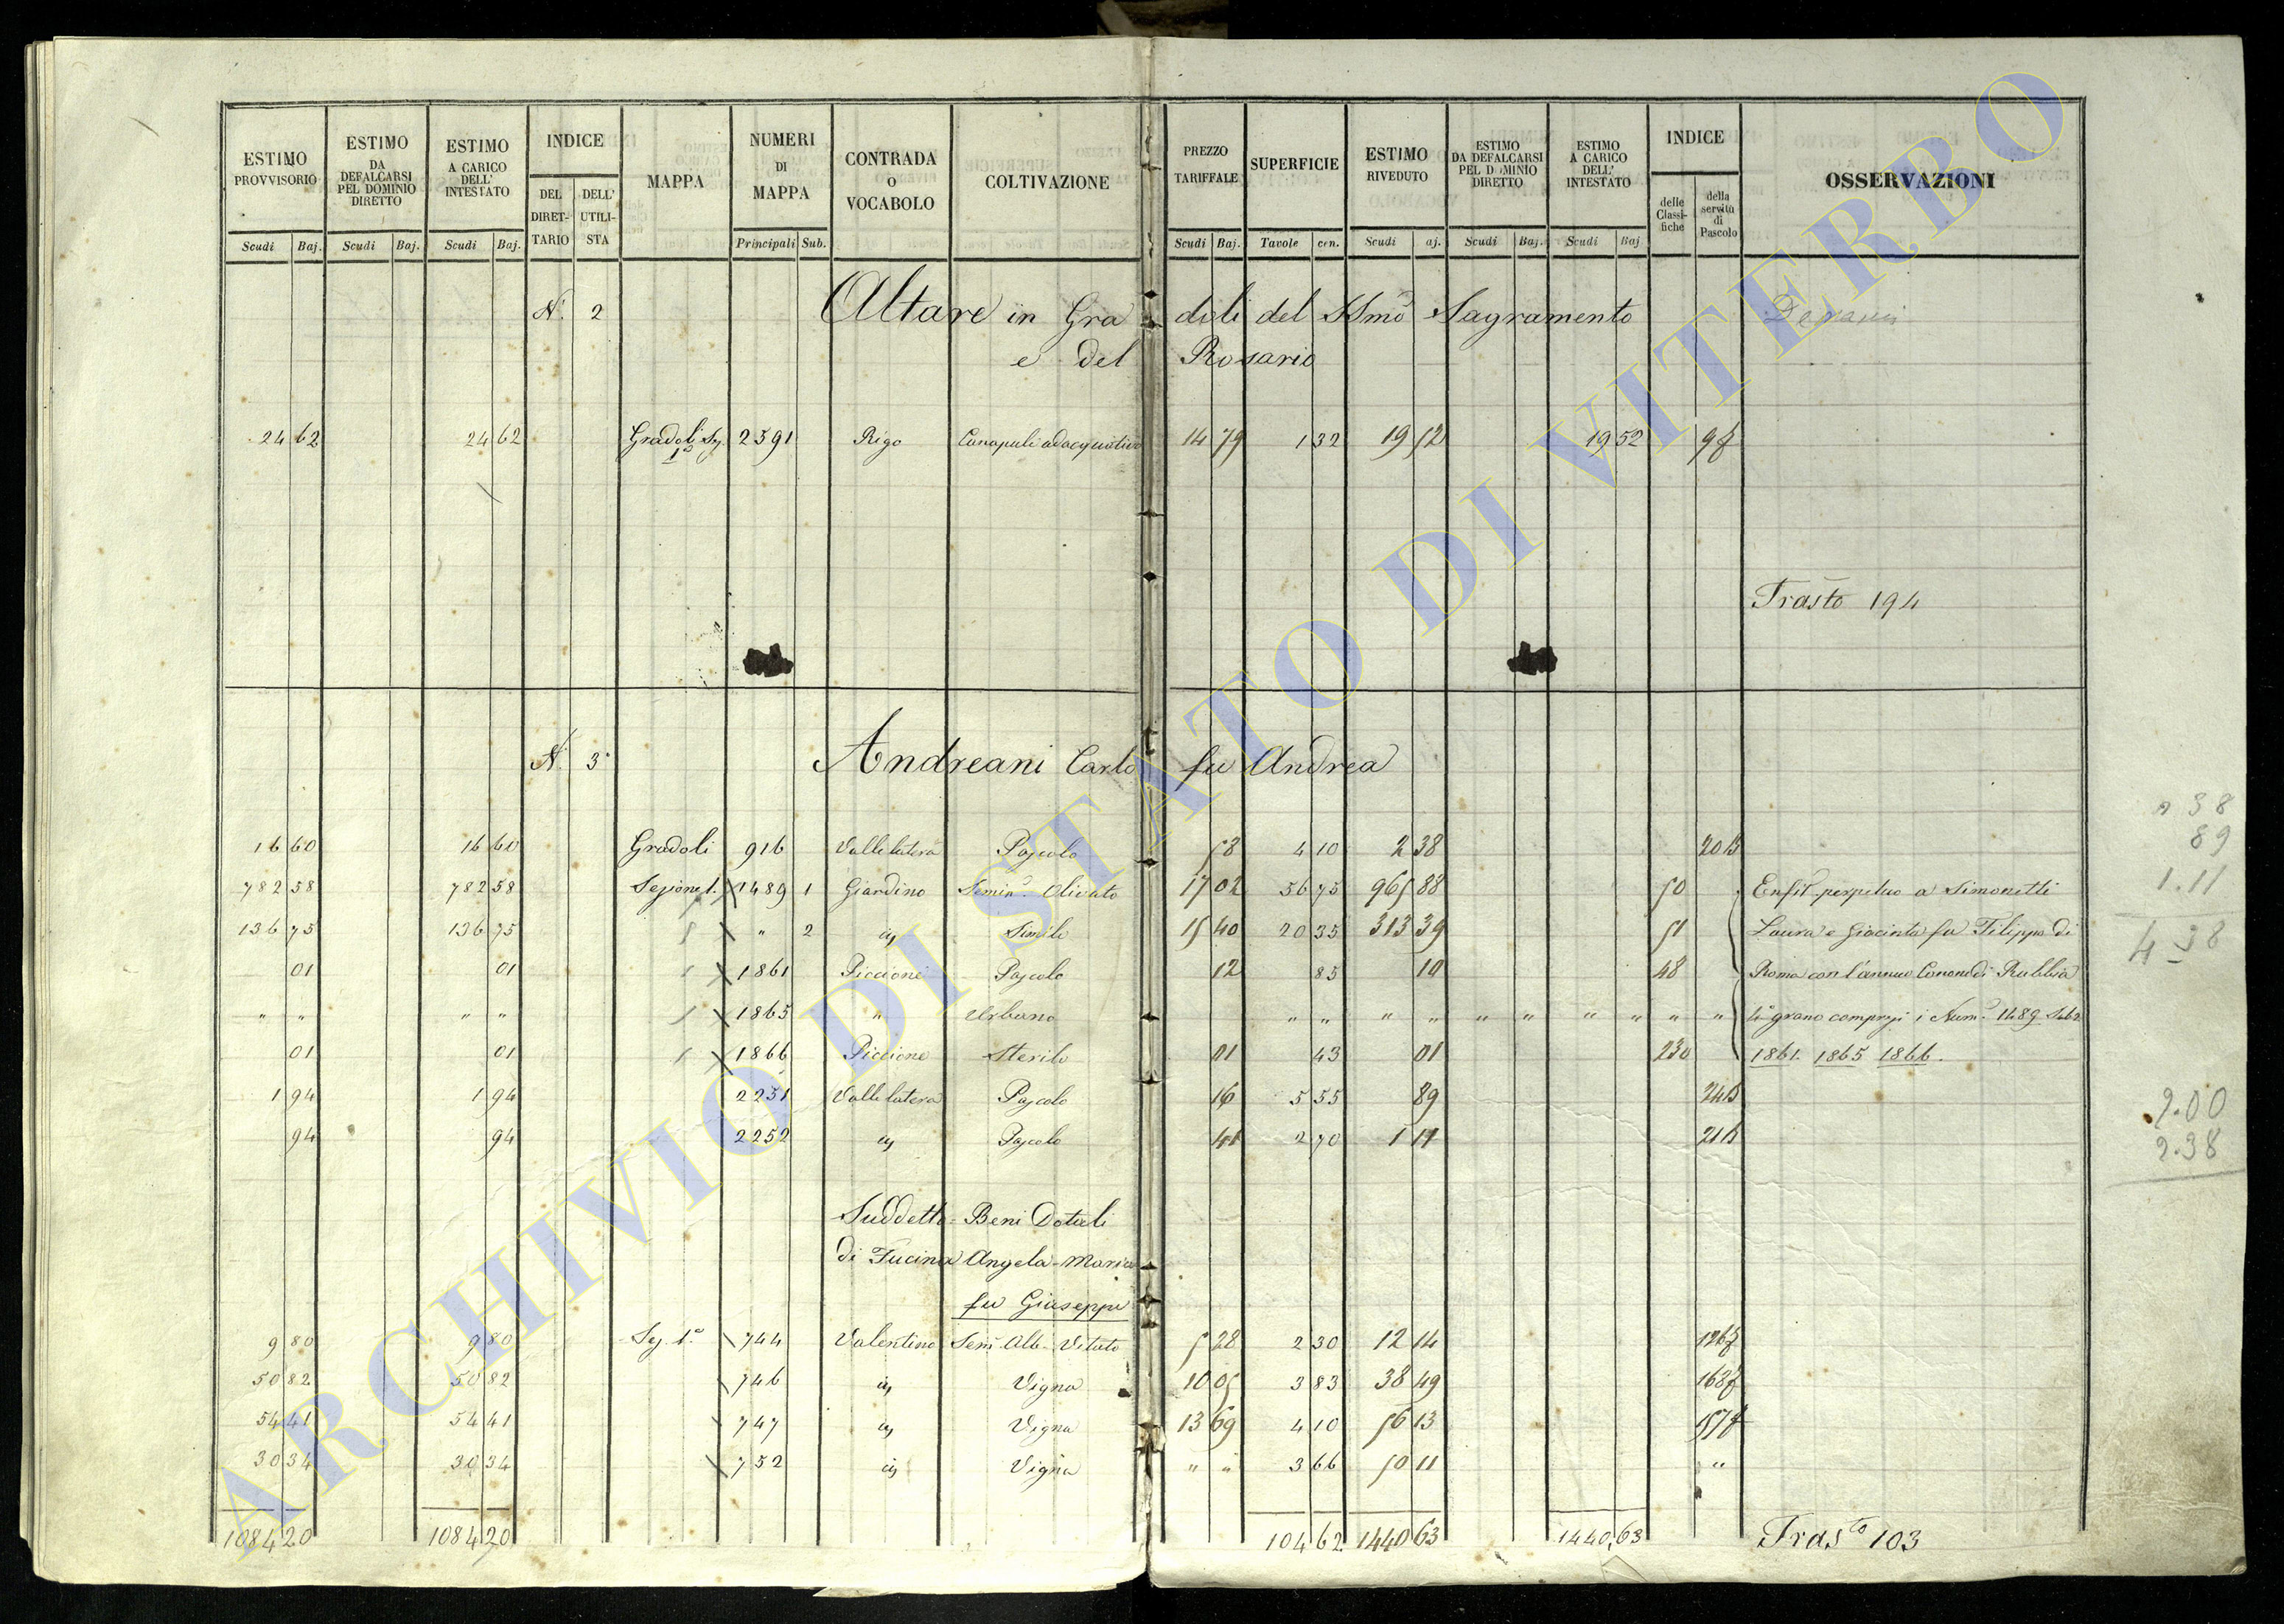 ESTIMO PROVVISORIO Scudi Baj. ESTIMO DA DEFALCARSI PEL DOMINIO DIRETTO Scudi Baj. ESTIMO A CARICO DELL' INTESTATO Scudi Baj. INDICE DEL DIRETTARIO DELL' UTILISTA MAPPA NUMERI DI MAPPA Principali Sub. CONTRADA O VOCABOLO COLTIVAZIONE PREZZO TARIFFALE Scudi Baj. SUPERFICIE Tavole cen. ESTIMO RIVEDUTO Scudi aj. ESTIMO DA DEFALCARSI PEL DOMINIO DIRETTO Scudi Baj. ESTIMO A CARICO DELL' INTESTATO Scudi Baj INDICE delle Classifiche della servitù di Pascolo OSSERVAZIONI
N. 2 Altare in Gradoli del SSmo Sagramento
e del Rosario
24 62 24 62 Gradoli Sez. 1a 2391 Rigo Canapuli adacquativo 14 79 1 32 19 52 19 52
Trasto 194
N. 3 Andreani Carlo fu Andrea
16 60 16 60 Gradoli 916 Valle latera Pascolo 58 4 10 2 38 20
782 58 782 58 Sezione 1. 1489 1 Giardino Semin. Olivato 17 02 56 75 965 88 50 Enfit. perpetuo a Simonetti
136 75 136 75 " 2 Simile 15 40 20 35 313 39 51 Laura e Giacinta fu Filippo di
01 01 1861 Piccione Pascolo 12 85 10 48 Roma con l'annuo Canone di Rubbia
" " " " 1865 " Urbano " " " " " " " " " " grano compresi i Num. 1489 Sub 2
01 01 1866 Piccione Sterile 01 43 01 230 1861. 1865 1866.
1 94 1 94 2251 Valle latera Pascolo 16 5 55 89 24
94 94 2252 Pascolo 41 2 70 1 11 21
Suddetto - Beni Dotali
di Fucina Angela-Maria
fu Giuseppe
9 80 9 80 Sez. 1a 744 Valentino Sem. Alb. Vitato 5 28 2 30 12 14
50 82 50 82 746 Vigna 10 05 3 83 38 49
54 41 54 41 747 Vigna 13 69 4 10 56 13
30 34 30 34 752 Vigna " " 3 66 50 11 "
1084 20 1084 20 104 62 1440 63 1440,63 Trasto 103
89
1.11
2.00
2.38
ARCHIVIO DI STATO DI VITERBO